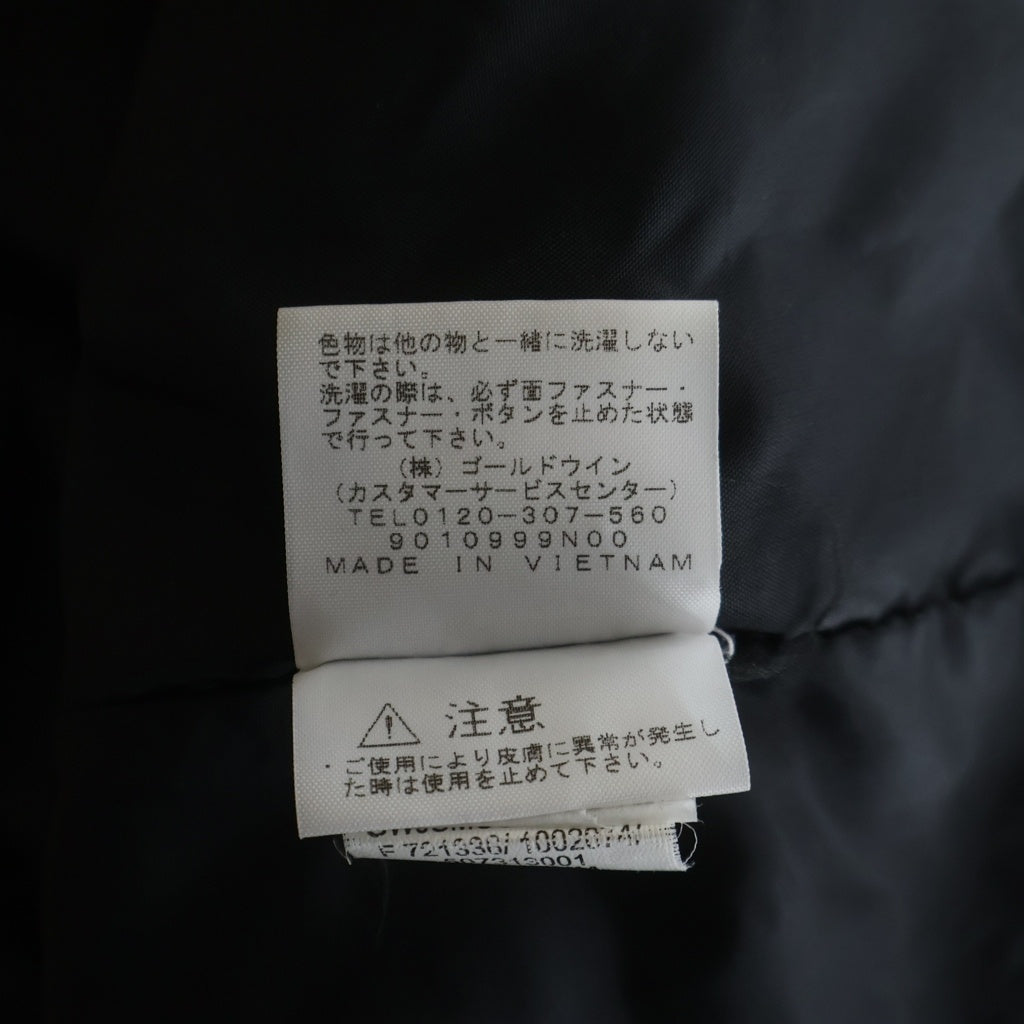 色物は他の物と一緒に洗濯しない
で下さい。
洗濯の際は、必ず面ファスナー・
ファスナー・ボタンを止めた状態
で行って下さい。
(株)ゴールドウイン
(カスタマーサービスセンター)
TEL0120-307-560
9010999N00
MADE IN VIETNAM
注意
・ご使用により皮膚に異常が発生し
た時は使用を止めて下さい。
F721336/1002074/
507313001